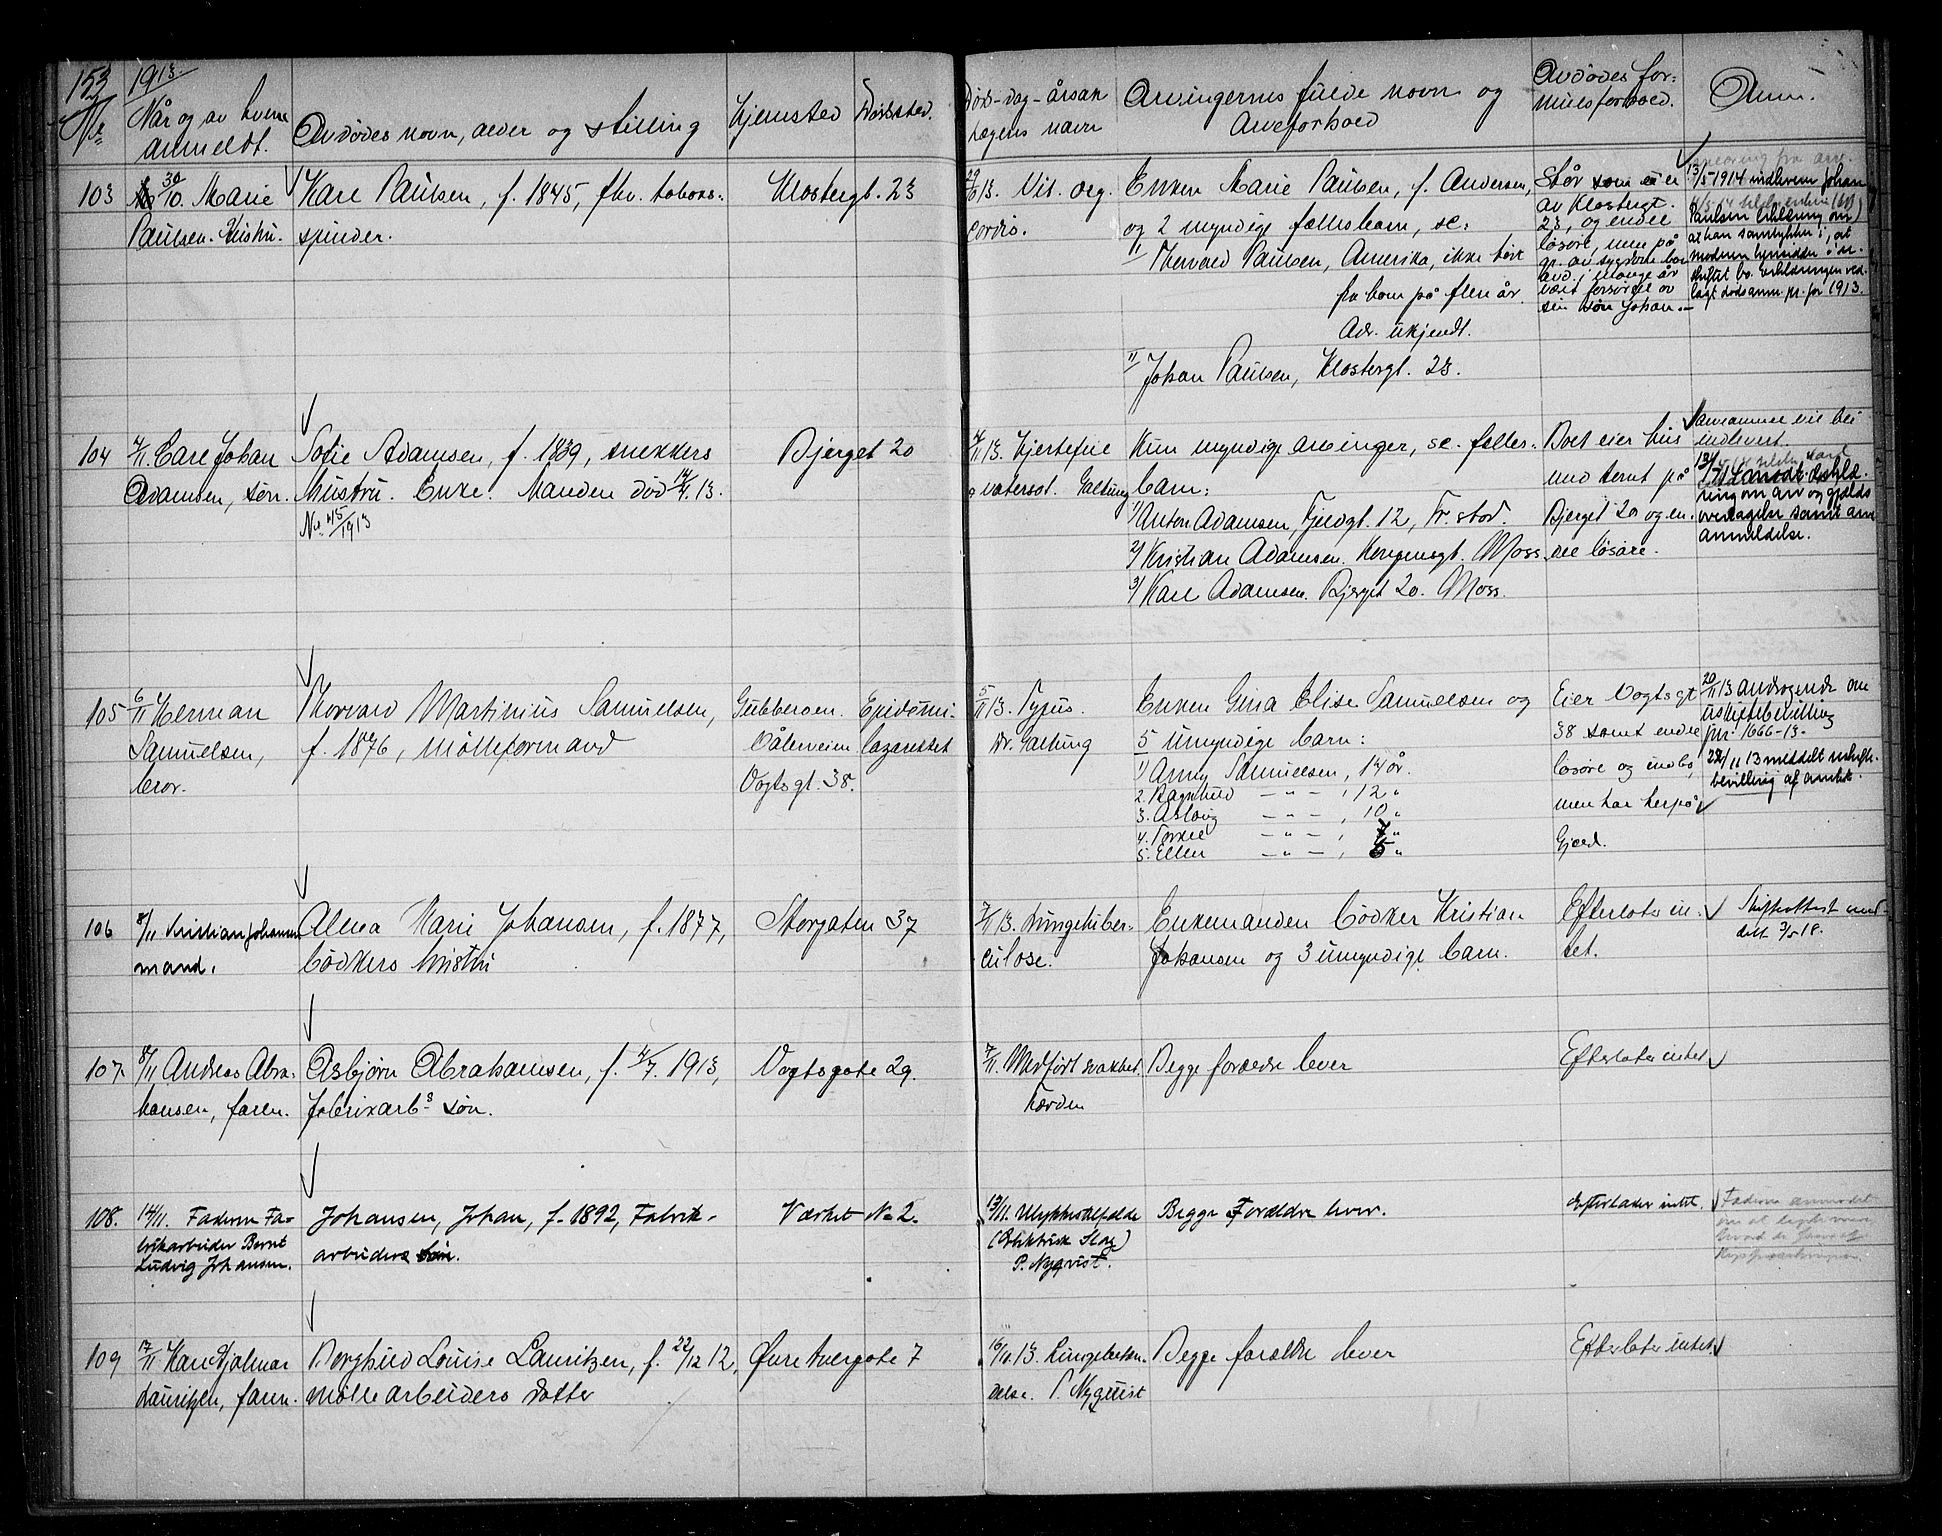 153 1913.
No Når og av hvem anmeldt. Avdødes navn, alder og stilling Hjemsted Dødssted.
Døds-dag-årsak Lægens navn Arvingernes fulde navn og Arveforhold Avdødes for-
muesforhold. Anm.
103 30/10. Marie
Paulsen. Hustru.
Karl Paulsen, f. 1845, fhv. tobaks-
spinder.
Klostergt. 23
29/10 13. Vit. org.
cordis.
Enken Marie Paulsen, f. Andersen,
og 2 myndige fællesbarn, se:
1/ Thorvald Paulsen, Amerika, ikke hørt
fra ham på flere år.
Adr. ukjendt.
2/ Johan Paulsen, Klostergt. 23.
Står som eier
av Klostergt.
23, og endel
løsøre, men på
gr. av sygdom har
avd. i mange år
vært forsørget av
sin søn Johan.—
13/5 1914 indleverer Johan
Paulsen erklæring om
at han samtykker i, at
moderen hensidder i u-
skiftet bo. Erklæringen ved-
lagt dødsanm. pr. for 1913.
104 7/11. Carl Johan
Adamsen, søn.
Sofie Adamsen, f. 1839, snekkers
hustru. Enke. Manden død 14/4. 13.
No. 45/1913
Bjerget 20
4/11 13. Hjertefeil
og vatersot. Galtung
Kun myndige arvinger, se. fælles-
barn:
1/ Anton Adamsen, Fjeldgt. 12, Fr.stad.
2/ Kristian Adamsen. Kongensgt. Moss.
3/ Karl Adamsen. Bjerget 20. Moss.
Boet eier hus
med tomt på
Bjerget 20 og en-
del løsøre.
Arveanmel. vil bli
indlevert.
13/5 14 modt. erklæ-
ring om arv og gjælds
overtagelse samt arve
anmeldelse.
105 6/11 Herman
Samuelsen,
bror.
Thorvald Martinius Samuelsen,
f. 1876, mølleformand
Gubberoen.
Vålerveien
Vogtsgt. 38.
Epidemi-
lazarettet
5/11 13. Tyfus.
Dr. Galtung
Enken Gina Elise Samuelsen og
5 umyndige barn:
1) Anny Samuelsen, 14 år.
2. Ragnhild — " — , 12 "
3. Aslaug — " — , 10 "
4. Torkel — " — , 7 "
5. Ellen — " — , 5 "
Eier Vogtsgt
38 samt endel
løsøre og indbo,
men har herpå
Gjæld.
20/11 13 andragende om
uskiftebevilling
jnr. 1666-13-
22/11 13 meddelt uskifte-
bevilling af amtet.
106 8/11 Kristian Johansen
mand.
Alma Marie Johansen, f. 1877,
bødkers hustru
Storgaten 37
7/11 13. Lungetuber-
culose.
Enkemanden bødker Kristian
Johansen og 3 umyndige barn.
Efterlater in-
tet.
Skifteattest med-
delt 3/5 18.
107. 8/11 Andreas Abra-
hamsen, faren.
Asbjørn Abrahamsen, f. 4/7. 1913,
fabrikarbs søn.
Vogtsgate 29.
7/11. Medfødt svakhet.
Færden
Begge forældre lever
Efterlater intet.
108. 14/11. Faderen Fa-
brikarbeider Bernt
Ludvig Johansen.
Johansen, Johan, f. 1892, Fabrik-
arbeiders søn.
Værket No 2.
13/11. Ulykkestilfælde
(Elektrisk Slag)
P. Nyqvist.
Begge Forældre lever.
Efterlader intet.
Faderen anmodet
109 17/11 Karl Hjalmar
Lauritzen, faren.
Borghild Louise Lauritzen, f. 22/12 12,
møllearbeiders datter
Øvre tvergate 7
16/11. 13. Lungebetæn-
delse. P. Nyquist
Begge forældre lever
Efterlater intet.